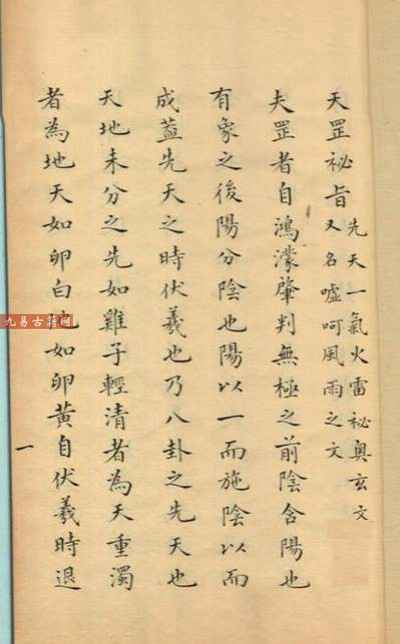 天罡祕旨
先天一氣火雷祕奧玄文
又名噓呵風雨之文
夫罡者自鴻濛肇判無極之前陰含陽也
有象之後陽分陰也陽以一而施陰以而
成蓋先天之時伏羲也乃八卦之先天也
天地未分之先如雞子輕清者為天重濁
者為地天如卵白地如卵黃自伏羲時退
一
九易古籍網